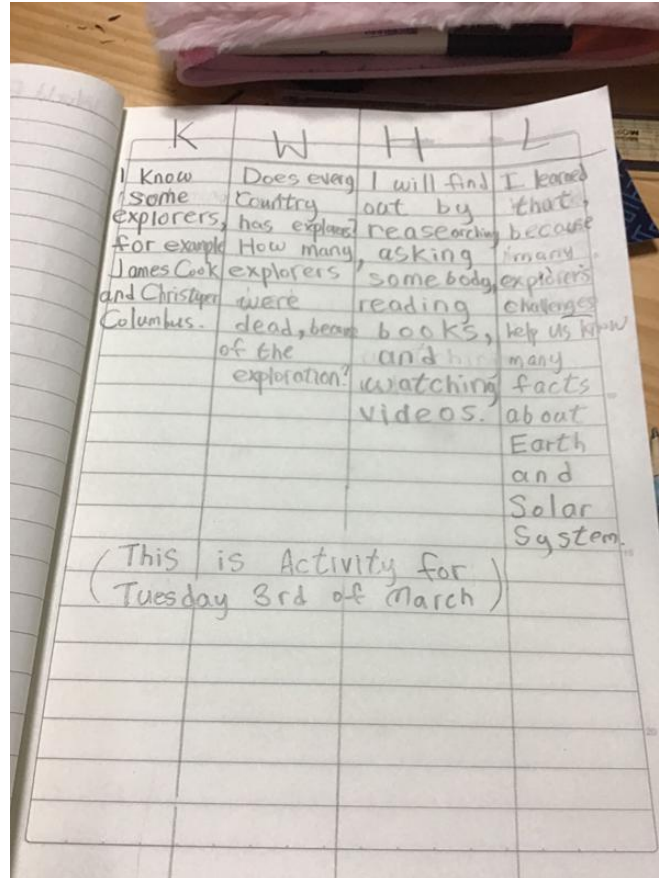 K W H L
I Know
some
explorers,
for example
James Cook
and Christoper
Columbus.
Does every
country
has explorers?
How many
explorers
were
dead, becaus
of the
exploration?
I will find
out by
reasearching
, asking
somebody,
reading
books,
and
watching
videos.
I learned
that,
because
many
explorer's
challenges
help us know
many
facts
about
Earth
and
Solar
System.
(This is Activity for
Tuesday 3rd of March)